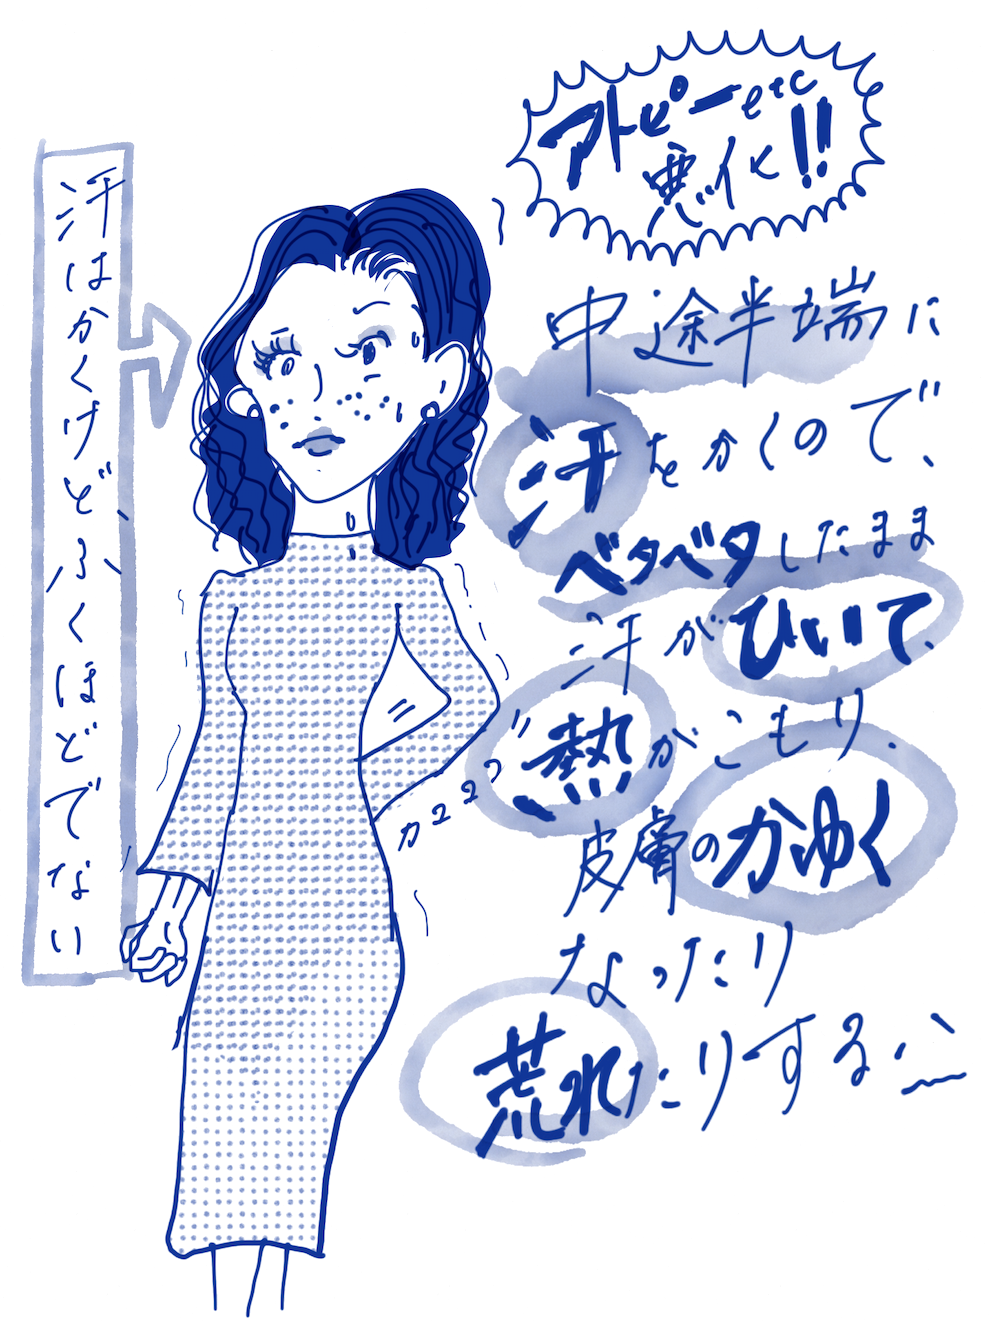 アトピーetc
悪化!!
汗はかくけど、ふくほどでない
中途半端に
汗をかくので、
ベタベタしたまま
汗がひいて、
熱がこもり、
皮膚のかゆく
なったり
荒れたりする